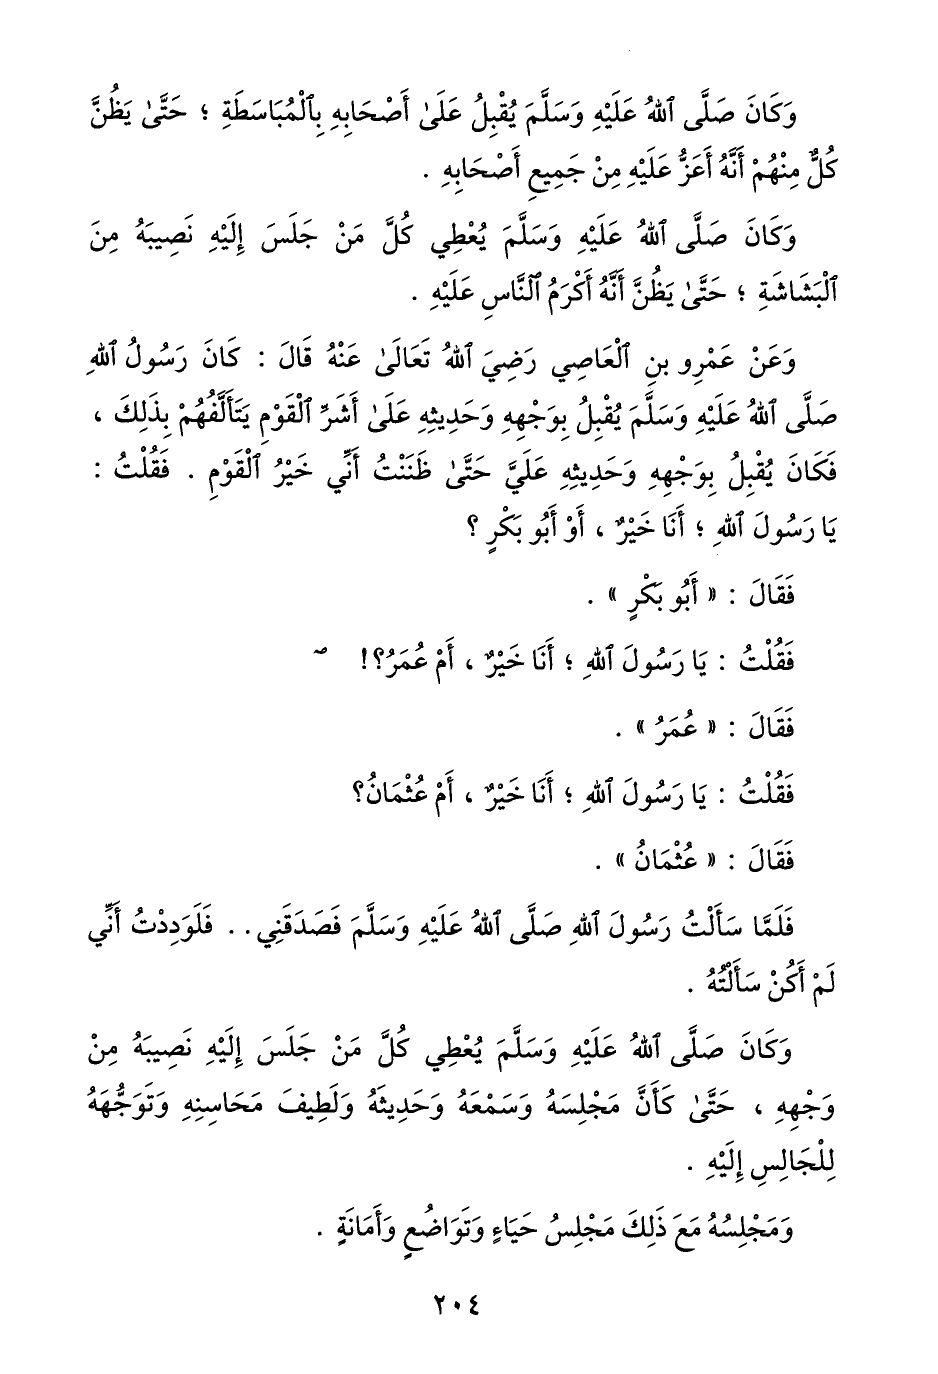 وَكَانَ صَلَّى ٱللهُ عَلَيْهِ وَسَلَّمَ يُقْبِلُ عَلَىٰ أَصْحَابِهِ بِٱلْمُبَاسَطَةِ ؛ حَتَّىٰ يَظُنَّ
كُلٌّ مِنْهُمْ أَنَّهُ أَعَزُّ عَلَيْهِ مِنْ جَمِيعِ أَصْحَابِهِ .
وَكَانَ صَلَّى ٱللهُ عَلَيْهِ وَسَلَّمَ يُعْطِي كُلَّ مَنْ جَلَسَ إِلَيْهِ نَصِيبَهُ مِنَ
ٱلْبَشَاشَةِ ؛ حَتَّىٰ يَظُنَّ أَنَّهُ أَكْرَمُ ٱلنَّاسِ عَلَيْهِ .
وَعَنْ عَمْرِو بنِ ٱلْعَاصِي رَضِيَ ٱللهُ تَعَالَىٰ عَنْهُ قَالَ : كَانَ رَسُولُ ٱللهِ
صَلَّى ٱللهُ عَلَيْهِ وَسَلَّمَ يُقْبِلُ بِوَجْهِهِ وَحَدِيثِهِ عَلَىٰ أَشَرِّ ٱلْقَوْمِ يَتَأَلَّفُهُمْ بِذَلِكَ ،
فَكَانَ يُقْبِلُ بِوَجْهِهِ وَحَدِيثِهِ عَلَيَّ حَتَّىٰ ظَنَنْتُ أَنِّي خَيْرُ ٱلْقَوْمِ . فَقُلْتُ :
يَا رَسُولَ ٱللهِ ؛ أَنَا خَيْرٌ ، أَوْ أَبُو بَكْرٍ ؟
فَقَالَ : « أَبُو بَكْرٍ » .
فَقُلْتُ : يَا رَسُولَ ٱللهِ ؛ أَنَا خَيْرٌ ، أَمْ عُمَرُ؟!
فَقَالَ : « عُمَرُ » .
فَقُلْتُ : يَا رَسُولَ ٱللهِ ؛ أَنَا خَيْرٌ ، أَمْ عُثْمَانُ؟
فَقَالَ : « عُثْمَانُ » .
فَلَمَّا سَأَلْتُ رَسُولَ ٱللهِ صَلَّى ٱللهُ عَلَيْهِ وَسَلَّمَ فَصَدَقَنِي.. فَلَوَدِدْتُ أَنِّي
لَمْ أَكُنْ سَأَلْتُهُ .
وَكَانَ صَلَّى ٱللهُ عَلَيْهِ وَسَلَّمَ يُعْطِي كُلَّ مَنْ جَلَسَ إِلَيْهِ نَصِيبَهُ مِنْ
وَجْهِهِ ، حَتَّىٰ كَأَنَّ مَجْلِسَهُ وَسَمْعَهُ وَحَدِيثَهُ وَلَطِيفَ مَحَاسِنِهِ وَتَوَجُّهَهُ
لِلْجَالِسِ إِلَيْهِ .
وَمَجْلِسُهُ مَعَ ذَلِكَ مَجْلِسُ حَيَاءٍ وَتَوَاضُعٍ وَأَمَانَةٍ .
٢٠٤